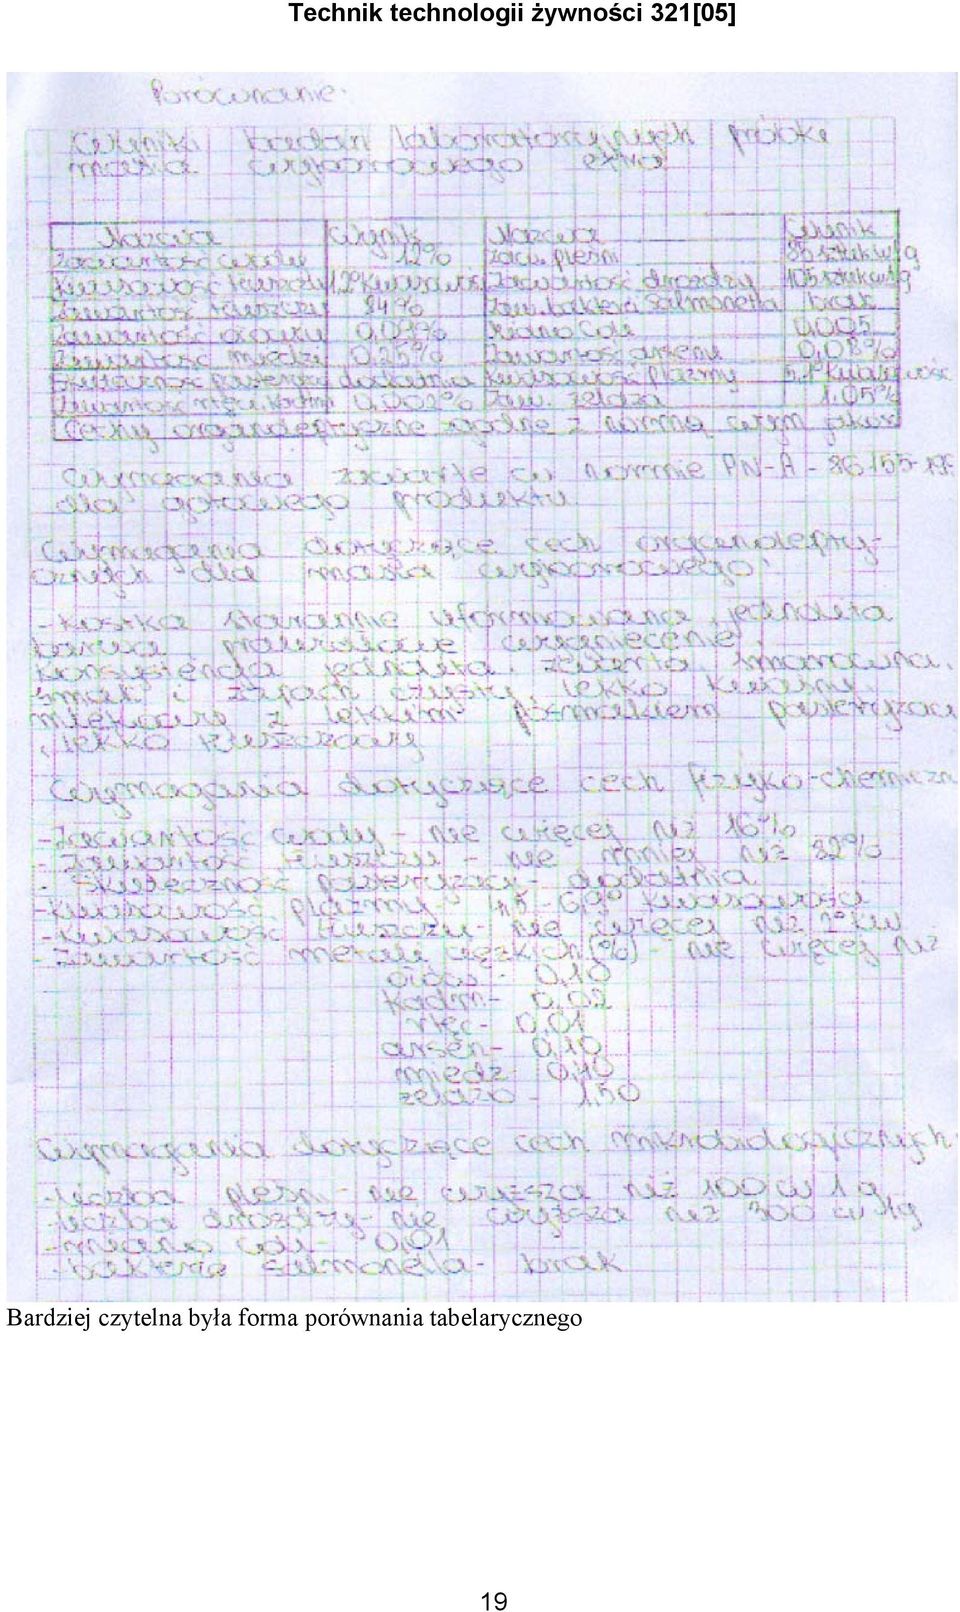 Technik technologii żywności 321[05]
Porównanie:
Wyniki badań laboratoryjnych próbki
masła wyborowego extra
Nazwa Wynik Nazwa Wynik
Zawartość wody 12% zaw. pleśni 86 sztuk w 1g
Kwasowość tłuszczu 1,2° kwasowości Zawartość drożdży 105 sztuk w 1g
Zawartość tłuszczu 84% Zaw. bakterii Salmonella brak
Zawartość ołowiu 0,09% Miano Coli 0,005
Zawartość miedzi 0,25% Zawartość arsenu 0,08%
Skuteczność dodatnia Kwasowość plazmy
Zawartość 0,002% Zaw. żelaza 1,05%
Cechy organoleptyczne zgodne z normą
Wymagania zawarte w normie PN-A-86155
dla gotowego produktu
Wymagania dotyczące cech organolepty-
cznych dla masła wyborowego:
- kostka starannie uformowana, jednolita
barwa, prawidłowe
konsystencja jednolita, zwarta, smarowna,
smak i zapach czysty, lekko kwaśny,
z lekkim posmakiem
, lekko
Wymagania dotyczące cech fizyko-chemiczn
- Zawartość wody - nie więcej niż 16%
- Zawartość tłuszczu - nie mniej niż 82%
- Skuteczność pasteryzacji - dodatnia
- Kwasowość plazmy - kwasowości
- Kwasowość tłuszczu - nie więcej niż 2° kw
- Zawartość metali ciężkich (%) - nie więcej niż
ołów - 0,10
kadm - 0,02
rtęć - 0,01
arsen - 0,10
miedź 0,10
żelazo - 1,50
Wymagania dotyczące cech mikrobiologicznych:
- liczba pleśni - nie wyższa niż 100 w 1 g
- liczba drożdży - nie wyższa niż 300 w 1g
- miano coli - 0,01
- bakterie salmonella - brak
Bardziej czytelna była forma porównania tabelarycznego
19